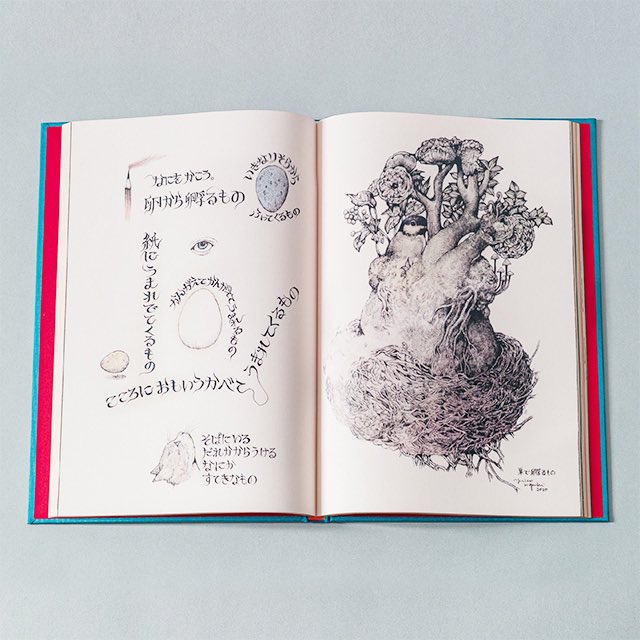 なにをかこう。
卵から孵るもの
いきなりそらから
ふってくるもの
紙にうまれでてくるもの
かんがえてかんがえて
こころにおもいうかべて
うまれてくるもの
そばにいる
だれかからうける
なにか
すてきなもの
巣で孵るもの
2020